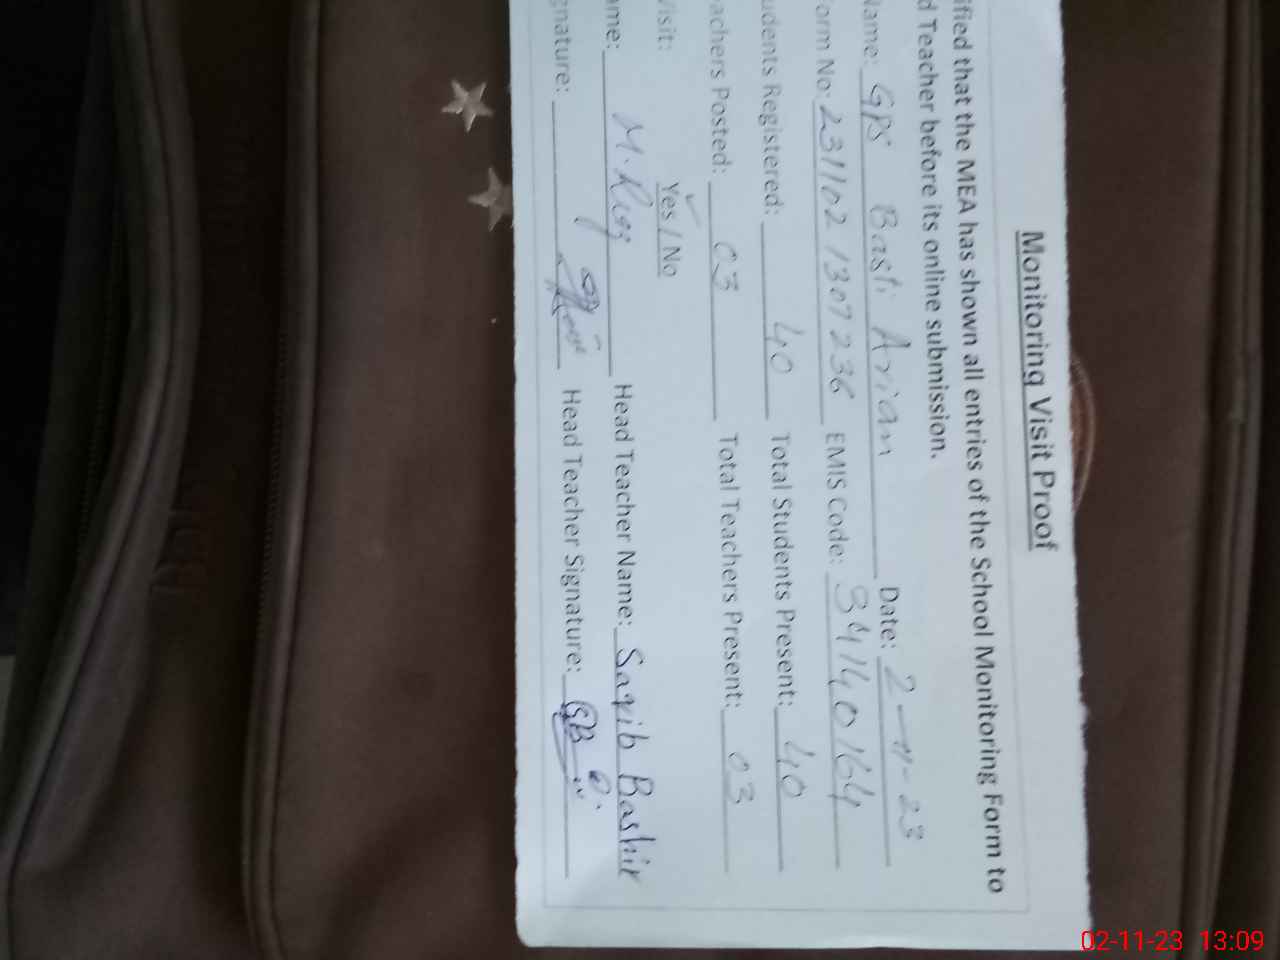 Monitoring Visit Proof
ified that the MEA has shown all entries of the School Monitoring Form to
d Teacher before its online submission.
Name: GPS Basti Arian Date: 2-11-23
orm No: 231102 1307236 EMIS Code: 34140164
udents Registered: 40 Total Students Present: 40
achers Posted: 03 Total Teachers Present: 03
isit: Yes / No
ame: M. Head Teacher Name: Saqib Bashir
gnature: Head Teacher Signature:
02-11-23 13:09